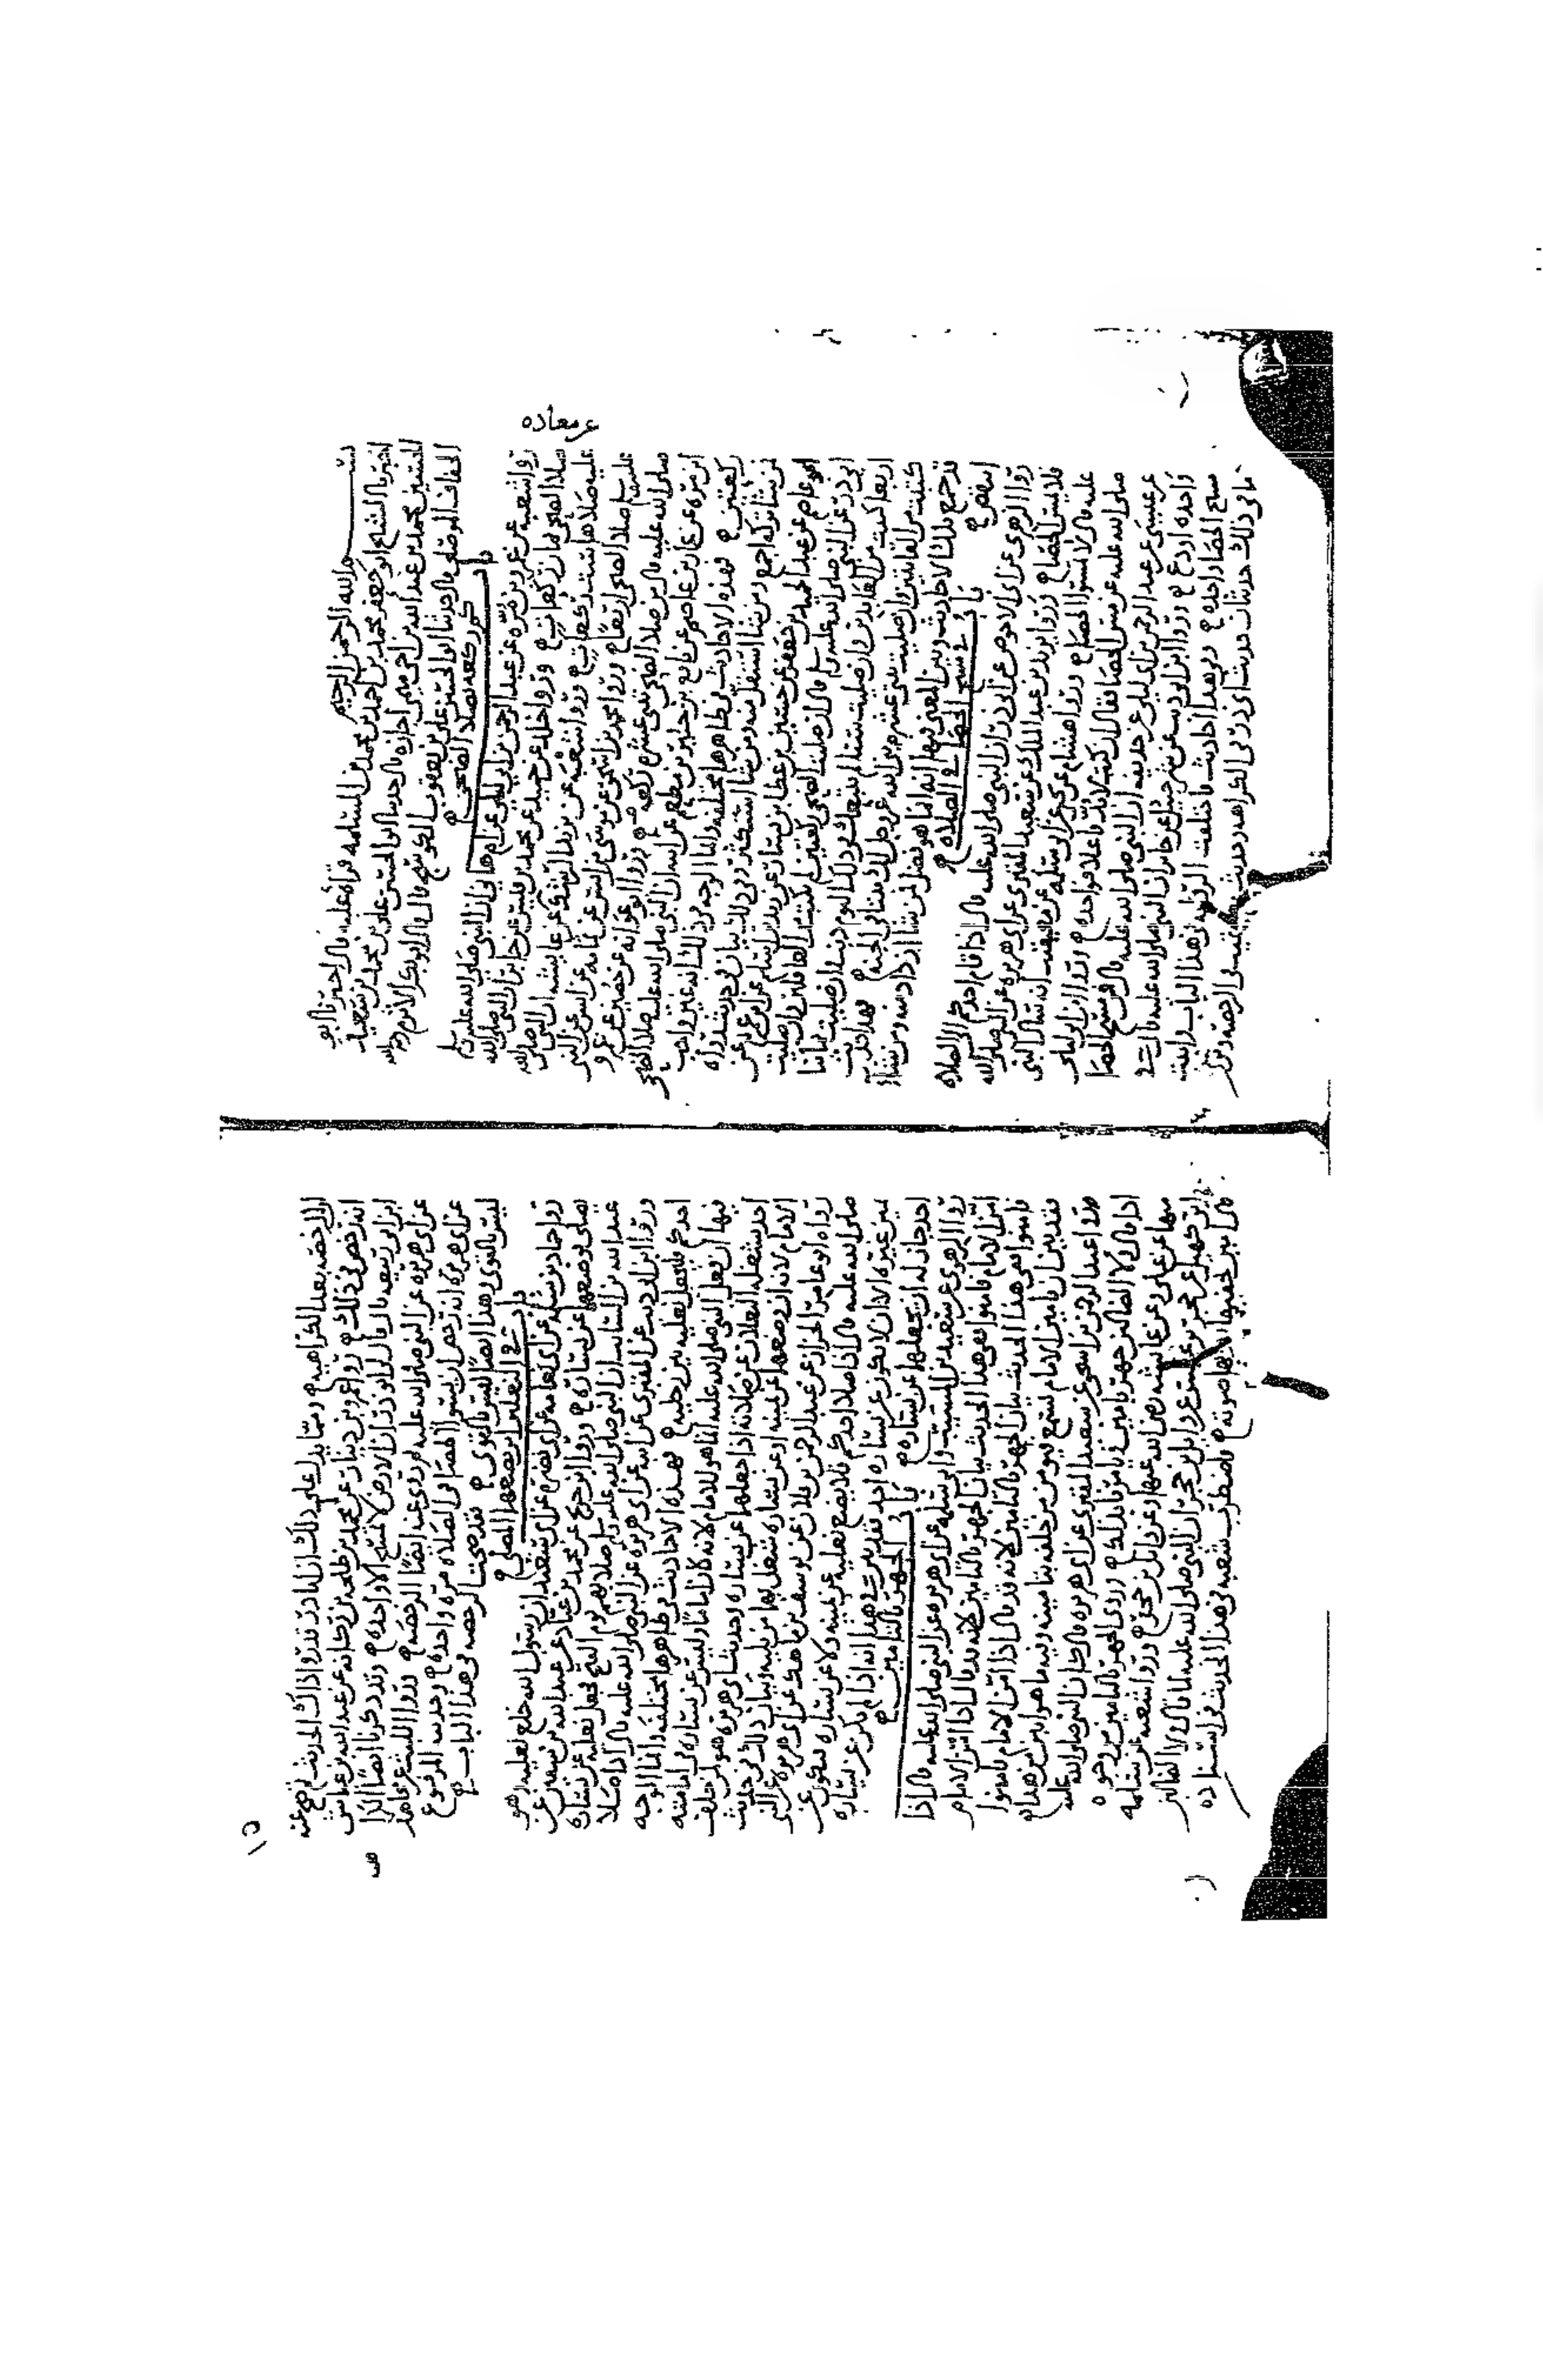 بسم الله الرحمن الرحيم
اخبرنا الشيخ ابو جعفر محمد بن احمد بن محمد بن المسلمه قراة عليه قال اخبرنا ابو
الحسين محمد بن عبد الله بن اخي ميمي اجازة قال حدثنا ابو الحسن علي بن محمد بن سعيد
الخفاف الموصلي قال حدثنا ابو الحسن علي بن يعقوب قال قال ابو بكر الاثرم رحمه الله
باب كم ركعه صلاه الضحى
روا شعبه عن عمرو بن مره عن عبد الرحمن بن ابي ليلى عن ام هاني ان النبي صلى الله عليه وسلم
صلا الضحى ثمان ركعات وروا خالد عن حميد عن محمد بن قيس عن جابر ان النبي صلى الله
عليه صلاها ست ركعات وروا شعبه عن يزيد الرشك عن عايشه ان النبي صلى الله
عن معاذه
عليه وسلم صلا الضحى اربعا وروا محمد بن اسحق عن موسى بن انس عن ثمامه عن انس عن النبي
صلى الله عليه قال من صلا الضحى ثنتي عشره ركعه وروا ابو عوانه عن حصين عن عمرو
ابن مره عن عمار بن عاصم عن نافع بن جبير بن مطعم عن ابيه ان النبي صلى الله عليه صلا الضحى
ركعتين فهذه الاحاديث في ظاهرها مختلفه وانما الوجه في ذلك انه غير واجب
فمن شا تركه اجمع ومن شا استقل منه ومن شا استكثر وفي ذلك بيان في حديث رواه
ابو عاصم عن عبد الحميد بن جعفر عن حسين بن عطا بن يسار عن زيد بن اسلم عن ابن عمر عن
ابي ذر عن النبي صلى الله عليه وسلم قال ان صليت الضحى ركعتين لم تكتب من الغافلين وان صليت
اربعا كتبت من العابدين وان صليت ستا لم يتبعك في ذلك اليوم ذنب وان صليت ثمانيا
كتبت من القانتين وان صليت ثنتي عشره بنى الله عز وجل لك بيتا في الجنه فهذا الحديث
قد جمع تلك الاحاديث وبين المعنى فيها انه انما هو فضل لمن شا ازداد منه ومن شا
انتقص
باب في مسح الحصا في الصلاه
روا الزهري عن ابي الاحوص عن ابي ذر ان النبي صلى الله عليه قال اذا قام احدكم الى الصلاه
فلا يمس الحصا وروا يزيد بن عبد الملك عن سعيد المقبري عن ابي هريره عن النبي صلى الله
عليه قال لا تمسوا الحصا وروا هشام عن يحيى عن ابي سلمه عن معيقيب انه سال النبي
صلى الله عليه عن مس الحصا فقال ان كنت لابد فاعلا فواحده وروا ابن ابي ليلى
عن عيسى عن عبد الرحمن بن ابي ليلى عن حذيفه ان النبي صلى الله عليه قال في مسح الحصا
واحده او دع وروا ابن ابي ذيب عن شرحبيل عن جابر ان النبي صلى الله عليه قال في
مسح الحصا واحده وبهذا احاديث فاختلفت الروايه في هذا الباب واثبت
ما في ذلك حديثان حديث ابي ذر في الكراهه وحديث معيقيب في الرخصه ونرى
ان الرخصه بعد الكراهيه ومما يدل على ذلك ان ابا ذر قد روا ذاك الحديث ثم صح عنه
انه رخص في ذلك وروا عمرو بن دينار عن محمد بن طلحه بن ركانه عن عبد الله بن عياش
ابن ابي ربيعه قال قال لي ابو ذر ان الارض لا تمسح الا واحده وقد ذكرنا ايضا الكراهيه
عن ابي هريره عن النبي صلى الله عليه ثم روي عنه ايضا الرخصه وروا الليث عن مجاهد
عن ابي هريره انه رخص ان يسوا الحصا في الصلاه مره واحده وحديثه المرفوع
ليس بالقوي وهذا ايضا ليس بالقوي فقد صحت الرخصه في هذا الباب
باب في النعلين اين يضعهما المصلي
روا حماد بن سلمه عن ابي نعامه عن ابي نضره عن ابي سعيد ان رسول الله خلع نعليه وهو
يصلي فوضعهما عن يساره وروا ابن جريج عن محمد بن عباد عن عبد الله بن سفين عن
عبد الله بن السايب ان النبي صلى الله عليه وسلم صلا بهم يوم الفتح فجعل نعليه عن يساره
وروا ابن ابي ذيب عن المقبري عن ابيه عن ابي هريره عن النبي صلى الله عليه قال اذا صلا
احدكم فليجعل نعليه بين رجليه فهذه الاحاديث في ظاهرها مختلفه وانما الوجه
فيها ان فعل النبي صلى الله عليه انما هو للامام لانه كان اماما وليس عن يساره في امامته
احد يشغله النعلان عن صلاته اذا جعلهما عن يساره وحديث ابي هريره هو لمن خلف
الامام لانه ان وضعهما عن يمينه او عن يساره شغل بهما من يليه وبيان ذلك في حديث
رواه ابو عامر الخزاز عن عبد الرحمن بن فلان عن يوسف بن ماهك عن ابي هريره عن النبي
صلى الله عليه قال اذا صلا احدكم فلا يضع نعليه عن يمينه ولا عن يساره فتكون عن
يمين غيره الا ان لا يكون عن يساره احد فقد بين في هذا انه اذا لم يكن عن يساره
احد جاز له ان يجعلهما عن يساره
باب الجهر بالتامين
روا الزهري عن سعيد بن المسيب وابي سلمه عن ابي هريره عن النبي صلى الله عليه قال اذا
امن الامام فامنوا ففي هذا الحديث بيان الجهر بالتامين لانه قد قال اذا امن الامام
فامنوا
فقد بين ان تامين الامام يسمع فيومن من خلفه بتامينه وفيه ما هو ابين من هذا
روا عبد الرحمن بن اسحق عن سعيد المقبري عن ابي هريره قال كان النبي صلى الله عليه
اذا قال ولا الضالين جهر بامين ثم يامر بذلك وروي الجهر بالتامين من وجوه
منها عن علي وعن عايشه رضي الله عنها وعن وايل بن حجر وروا شعبه عن سلمه
ابن كهيل عن حجر بن عنبس عن وايل بن حجر ان النبي صلى الله عليه لما قال ولا الضالين
قال امين خفض بها صوته فاضطرب شعبه في هذا الحديث في اسناده